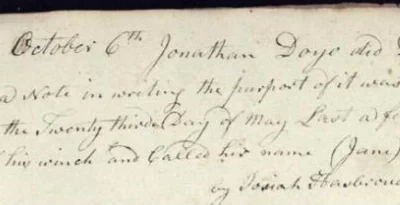 October 6th Jonathan Doyo did
a Note in writing the purport of it was
the Twenty third Day of May Last a fe
his winch and Called his name (Jane)
by Josiah Hasbrouc